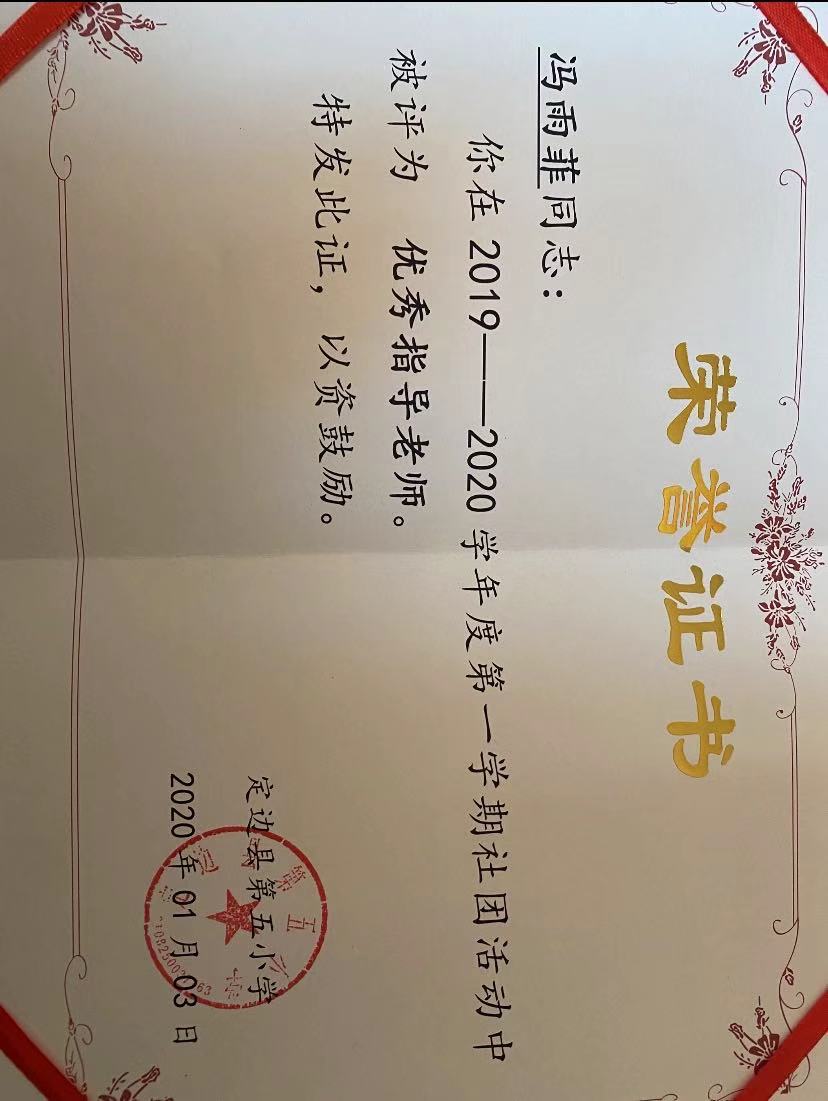 荣誉证书
冯雨菲同志：
你在2019——2020学年度第一学期社团活动中
被评为 优秀指导老师。
特发此证，以资鼓励。
定边县第五小学
2020年01月03日